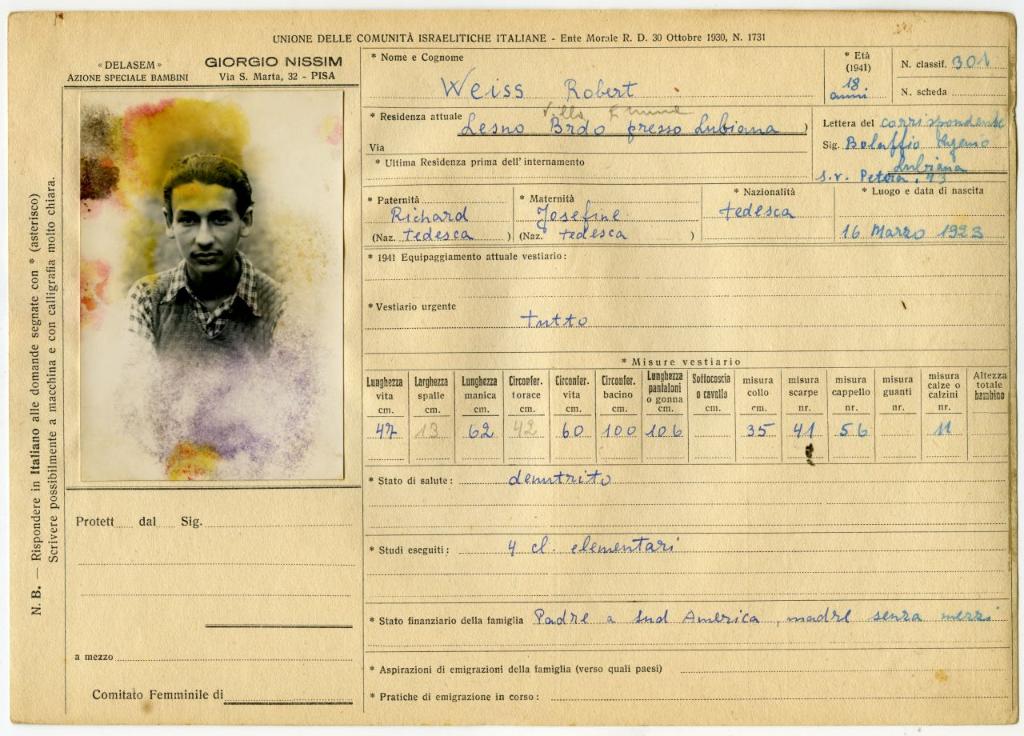 UNIONE DELLE COMUNITÀ ISRAELITICHE ITALIANE - Ente Morale R. D. 30 Ottobre 1930, N. 1731
« DELASEM »
AZIONE SPECIALE BAMBINI
GIORGIO NISSIM
Via S. Marta, 32 - PISA
N. B. — Rispondere in Italiano alle domande segnate con * (asterisco)
Scrivere possibilmente a macchina e con calligrafia molto chiara.
Protett dal Sig.
a mezzo
Comitato Femminile di
* Nome e Cognome
Weiss Robert
* Età
(1941)
18
anni
N. classif. 301
N. scheda
* Residenza attuale Lesno Brdo presso Lubiana )
Villa
Via
* Ultima Residenza prima dell'internamento
Lettera del corrispondente
Sig. Bolaffio
Lubiana
s.v. Petra, 43
* Paternità
Richard
(Naz. tedesca )
* Maternità
Josefine
(Naz. tedesca )
* Nazionalità
tedesca
* Luogo e data di nascita
16 Marzo 1923
* 1941 Equipaggiamento attuale vestiario:
* Vestiario urgente
tutto
* Misure vestiario
Lunghezza vita cm. 47
Larghezza spalle cm. 13
Lunghezza manica cm. 62
Circonfer. torace cm. 42
Circonfer. vita cm. 60
Circonfer. bacino cm. 100
Lunghezza pantaloni o gonna cm. 106
Sottocoscia o cavallo cm.
misura collo cm. 35
misura scarpe nr. 41
misura cappello nr. 56
misura guanti nr.
misura calze o calzini nr. 11
Altezza totale bambino
* Stato di salute: denutrito
* Studi eseguiti: 4 cl. elementari
* Stato finanziario della famiglia Padre a Sud America, madre senza mezzi
* Aspirazioni di emigrazioni della famiglia (verso quali paesi)
* Pratiche di emigrazione in corso: